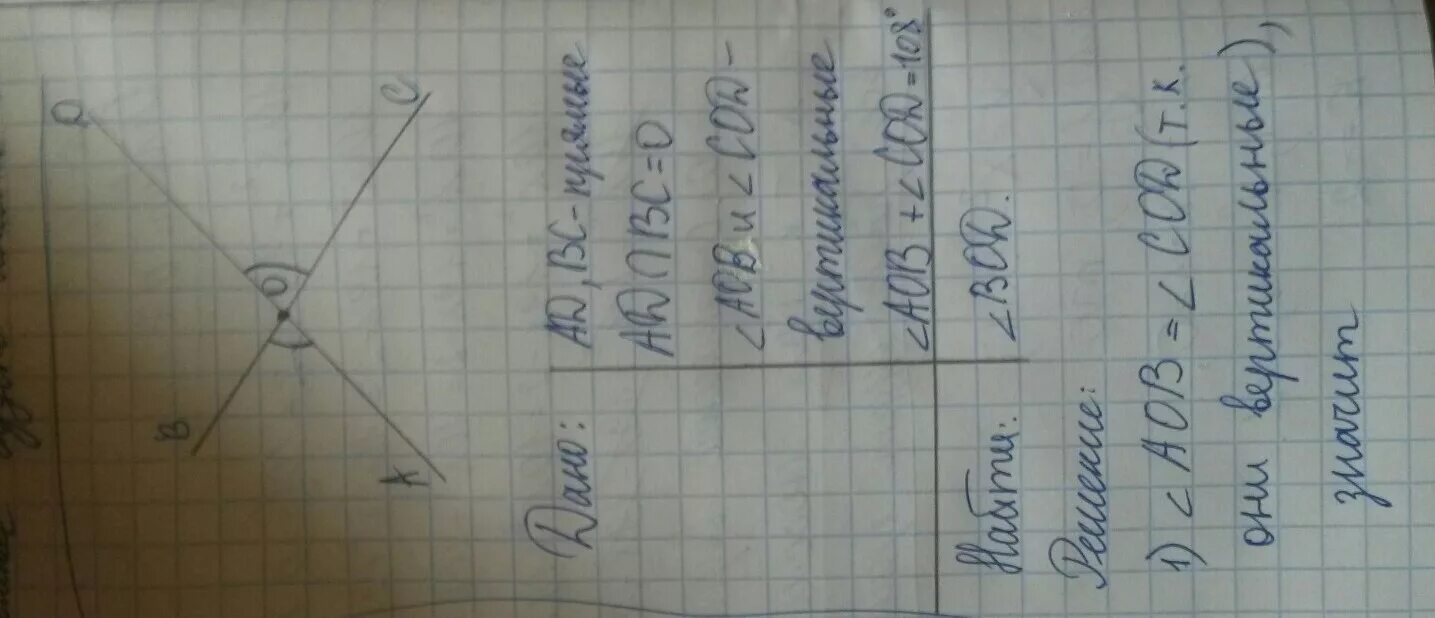 D
C
O
B
A
Дано:
AD, BC - прямые
AD ∩ BC = O
∠AOB и ∠COD -
вертикальные
∠AOB + ∠COD = 108°
Найти:
∠BOD.
Решение:
1) ∠AOB = ∠COD (т.к.
они вертикальные),
значит